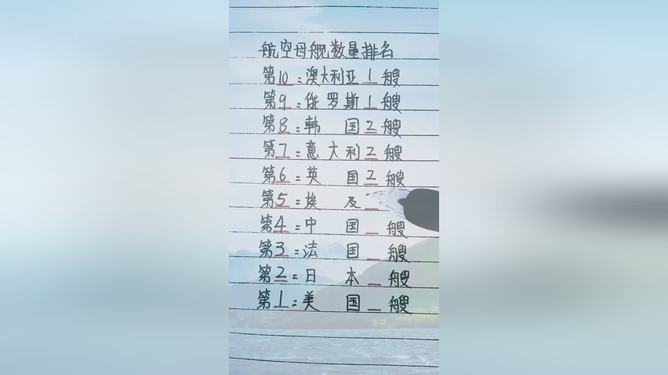 航空母舰数量排名
第10:澳大利亚1艘
第9:俄罗斯1艘
第8:韩 国2艘
第7:意大利2艘
第6:英 国2艘
第5:埃 及_
第4:中 国_艘
第3:法 国_艘
第2:日 本_艘
第1:美 国_艘